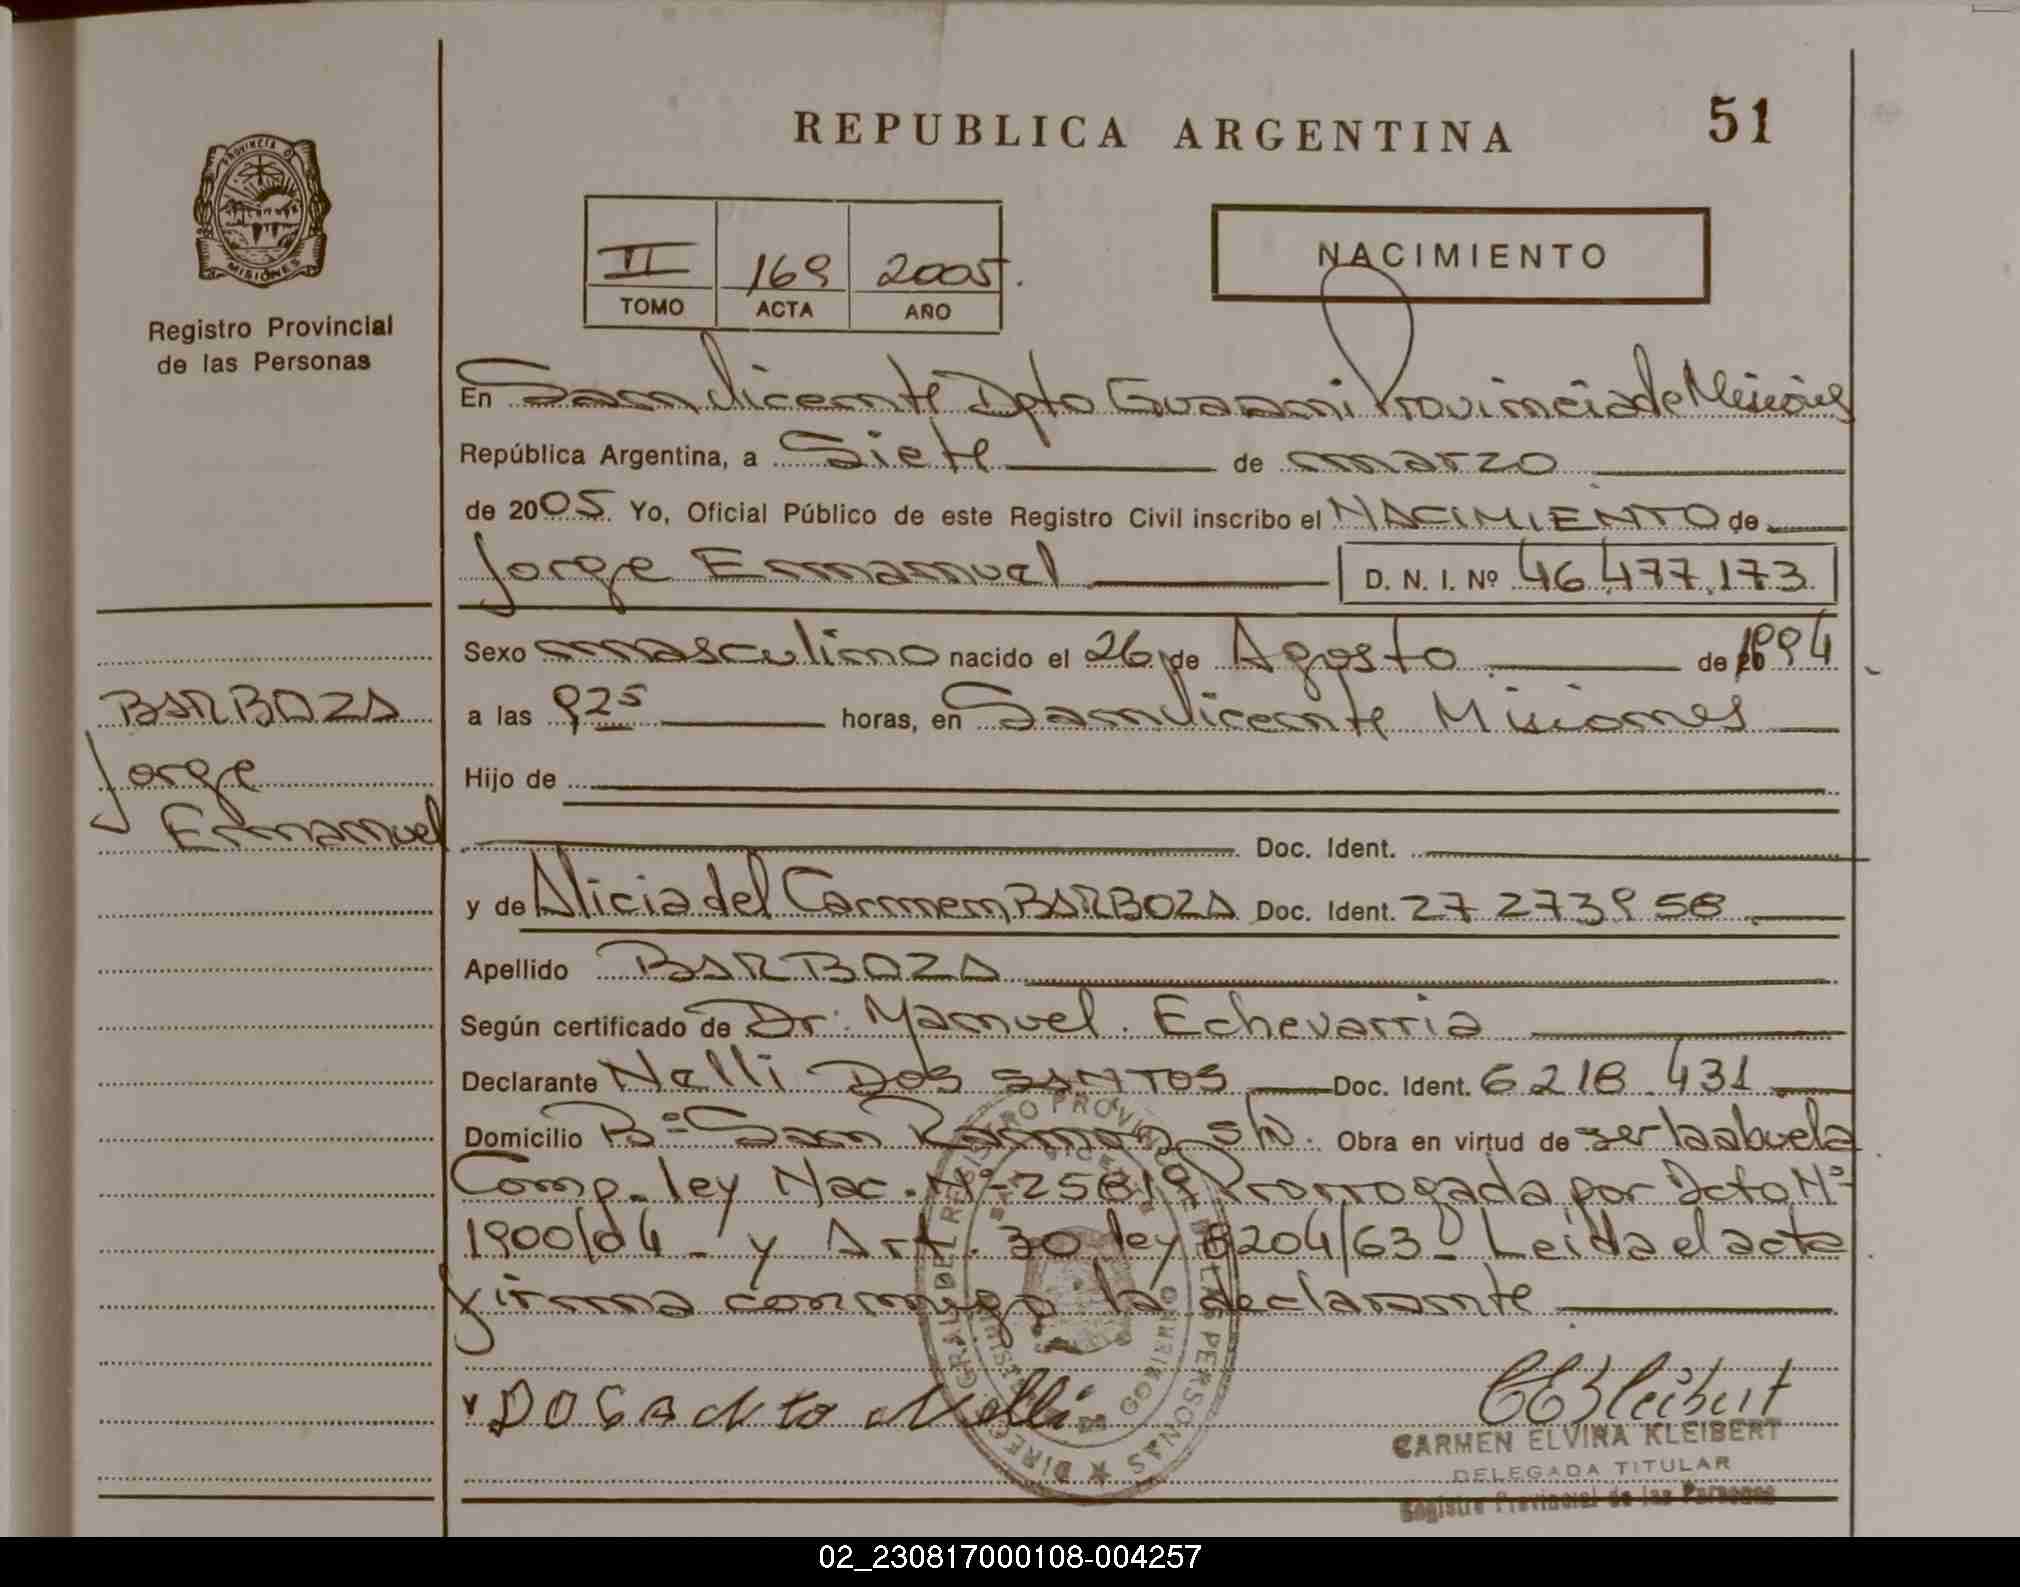 REPUBLICA ARGENTINA
51
PROVINCIA D
MISIONES
Registro Provincial
de las Personas
II 169 2005.
TOMO ACTA AÑO
NACIMIENTO
En San Vicente Dpto Guarani Provincia de Misiones
República Argentina, a Siete de marzo
de 2005. Yo, Oficial Público de este Registro Civil inscribo el NACIMIENTO de
Jorge Emmanuel D. N. I. Nº 46.477.173
Sexo masculino nacido el 26 de Agosto de 1994
a las 925 horas, en San Vicente Misiones
Hijo de
Doc. Ident.
y de Alicia del Carmen BARBOZA Doc. Ident. 27 273958
Apellido BARBOZA
Según certificado de Dr. Manuel. Echevarria
Declarante Nelli DOS SANTOS Doc. Ident. 6218.431
Domicilio Bº San Ramon s/n. Obra en virtud de ser la abuela
Comp. ley Nac. Nº 25819 Prorrogada por Dcto Nº
1900/04 - y Art. 30 ley 8204/63 - Leida el acta
firma conmigo la declarante
BARBOZA
Jorge
Emmanuel
DOS SANTO Nelli
CARMEN ELVIRA KLEIBERT
DELEGADA TITULAR
Registro Provincial de las Personas
02_230817000108-004257